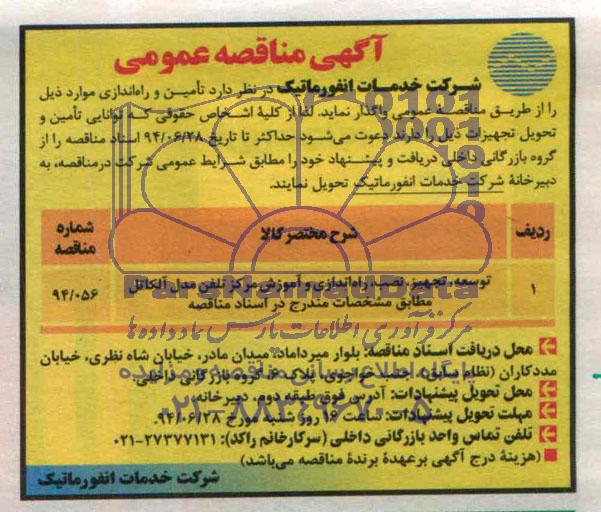 آگهی مناقصه عمومی
شرکت خدمات انفورماتیک در نظر دارد تأمین و راه‌اندازی موارد ذیل
را از طریق مناقصه عمومی واگذار نماید. لذا از کلیهٔ اشخاص حقوقی که توانایی تأمین و
تحویل تجهیزات ذیل را دارند دعوت می‌شود حداکثر تا تاریخ ۹۴/۰۶/۲۸ اسناد مناقصه را از
گروه بازرگانی داخلی دریافت و پیشنهاد خود را مطابق شرایط عمومی شرکت در مناقصه، به
دبیرخانهٔ شرکت خدمات انفورماتیک تحویل نمایند.
ردیف شرح مختصر کالا شماره مناقصه
۱ توسعه، تجهیز، نصب، راه‌اندازی و آموزش مرکز تلفن مدل آلکاتل ۹۴/۰۵۶
مطابق مشخصات مندرج در اسناد مناقصه
ParsNamadData
مرکز فرآوری اطلاعات پارس نماد داده‌ها
محل دریافت اسناد مناقصه: بلوار میرداماد، میدان مادر، خیابان شاه نظری، خیابان
مددکاران (نظام سابق)، جنب خواجوی، پلاک ۶، گروه بازرگانی داخلی.
پایگاه اطلاع رسانی مناقصه و مزایده
محل تحویل پیشنهادات: آدرس فوق طبقه دوم، دبیرخانه.
مهلت تحویل پیشنهادات: ساعت ۱۶ روز شنبه مورخ ۹۴/۰۶/۲۸.
۰۲۱-۸۸۳۴۹۶۷۰-۵
تلفن تماس واحد بازرگانی داخلی (سرکار خانم راکد): ۲۷۳۷۷۱۳۱-۰۲۱
(هزینهٔ درج آگهی بر عهدهٔ برندهٔ مناقصه می‌باشد)
شرکت خدمات انفورماتیک